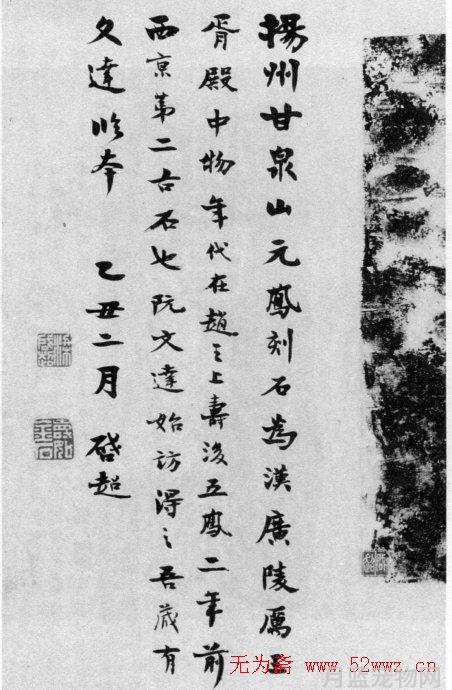 揚州甘泉山元鳳刻石為漢廣陵厲王
胥殿中物年代在趙之上壽後五鳳二年前
西京第二古石也阮文達始訪得之吾藏有
文達本 乙丑二月 啓超
无为斋 www.52wwz.cn
月蓝宠物网